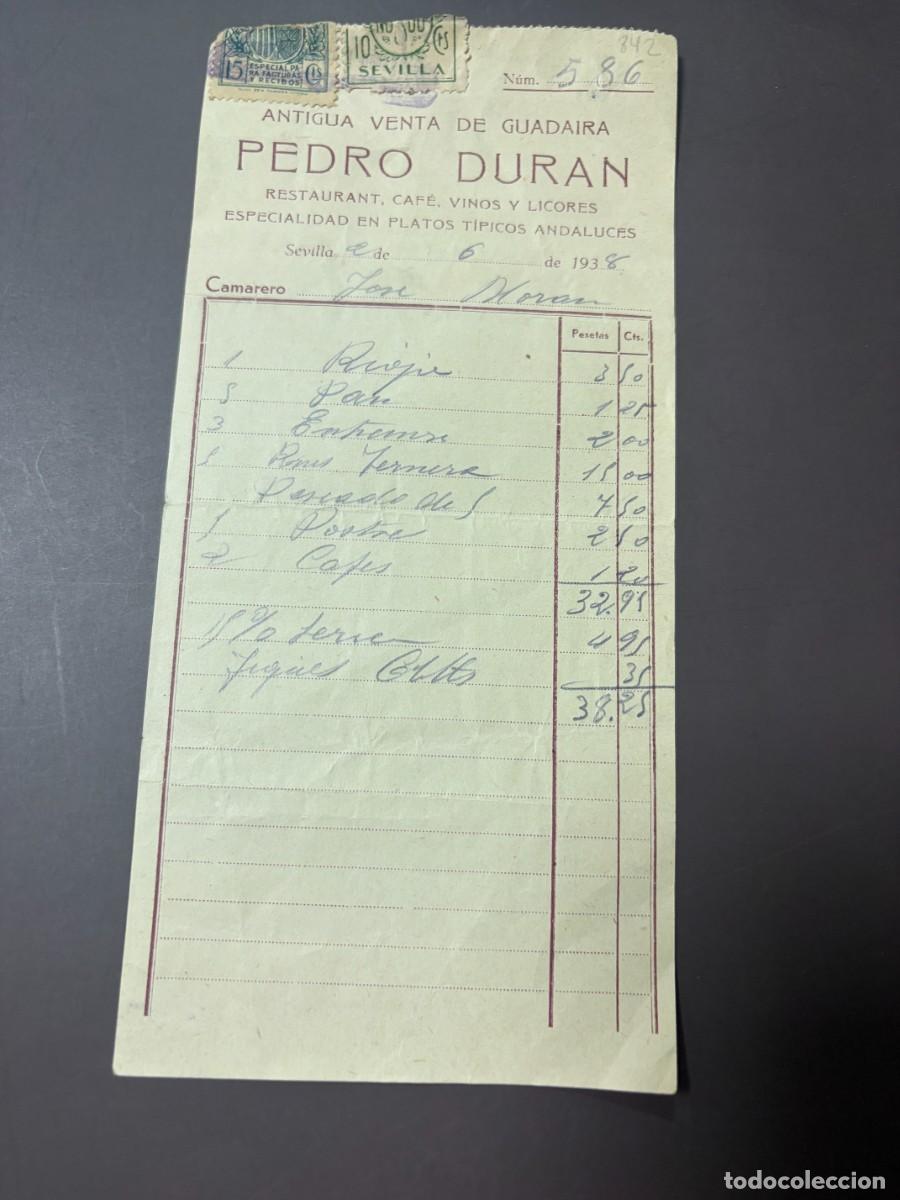 842
15 ESPECIAL PARA FACTURAS Y RECIBOS Cts
10 Cts
SEVILLA
Núm. 586
ANTIGUA VENTA DE GUADAIRA
PEDRO DURAN
RESTAURANT, CAFÉ, VINOS Y LICORES
ESPECIALIDAD EN PLATOS TÍPICOS ANDALUCES
Sevilla 2 de 6 de 1938
Camarero Jose Moran
Pesetas Cts.
1 Rioja 3 50
5 Pan 1 25
3 Entremes 2 00
5 Ternera 15 00
Pescado de 5 7 50
5 Postre 2 50
2 Cafes 1 20
32.95
15 % 4 95
35
38.25
todocoleccion